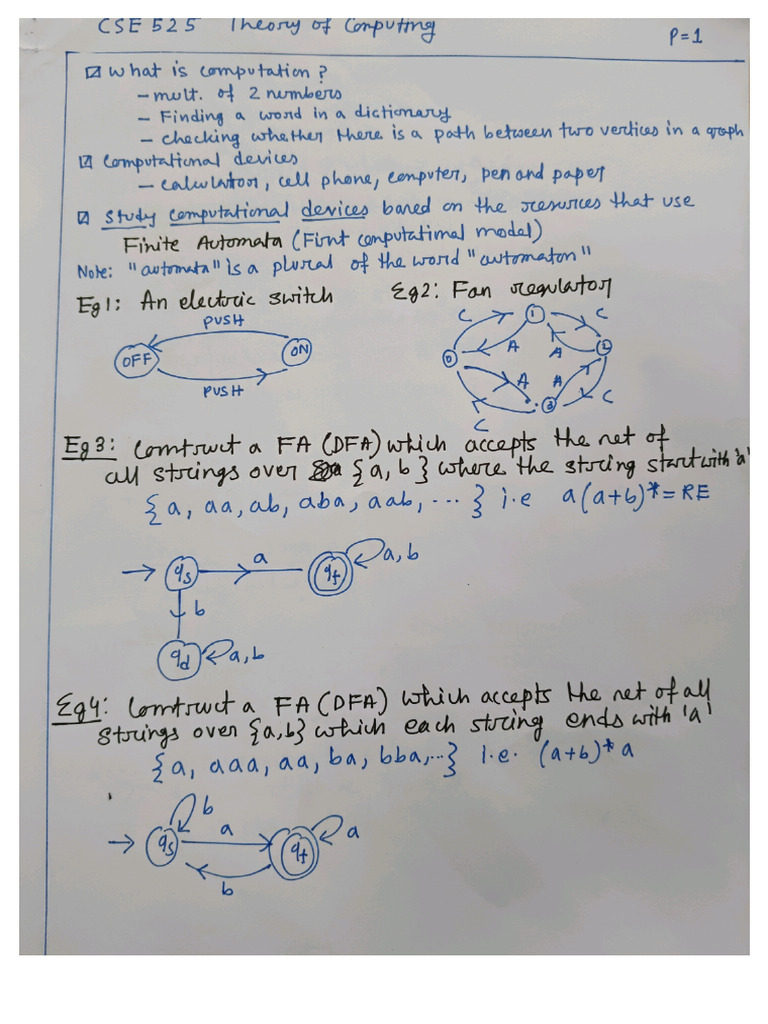 CSE 525 Theory of Computing
P=1
What is computation?
- mult. of 2 numbers
- Finding a word in a dictionary
- checking whether there is a path between two vertices in a graph
Computational devices
- calculator, cell phone, computer, pen and paper
Study computational devices based on the resources that use
Finite Automata (First computational model)
Note: "automata" is a plural of the word "automaton"
Eg1: An electric switch
Eg2: Fan regulator
PUSH
OFF ON
PUSH
C 1 C
0 A A 2
A A
3 C
C
Eg3: Construct a FA (DFA) which accepts the set of
all strings over {a, b} where the string start with 'a'
{a, aa, ab, aba, aab, ...} i.e a(a+b)* = RE
qs a qf a, b
b
qd a, b
Eg4: Construct a FA (DFA) which accepts the set of all
strings over {a,b} which each string ends with 'a'
{a, aaa, aa, ba, bba, ...} i.e. (a+b)* a
b
qs a qf a
b